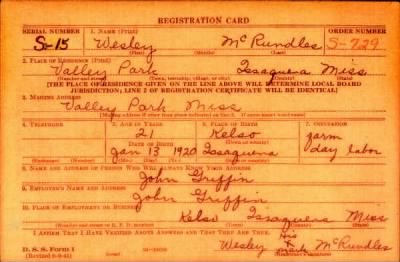 REGISTRATION CARD
SERIAL NUMBER 1. NAME (Print) ORDER NUMBER
S-15 Wesley McRundles S-729
(First) (Middle) (Last)
2. PLACE OF RESIDENCE (Print)
Valley Park Issaquena Miss.
(Number and street) (Town, township, village, or city) (County) (State)
[THE PLACE OF RESIDENCE GIVEN ON THE LINE ABOVE WILL DETERMINE LOCAL BOARD
JURISDICTION; LINE 2 OF REGISTRATION CERTIFICATE WILL BE IDENTICAL]
3. MAILING ADDRESS
Valley Park Miss
[Mailing address if other than place indicated on line 2. If same insert word same]
4. TELEPHONE 5. AGE IN YEARS 6. PLACE OF BIRTH 7. OCCUPATION
21 Kelso farm
DATE OF BIRTH (Town or county)
Jan 13 1920 Issaquena day labor
(Exchange) (Number) (Mo.) (Day) (Yr.) (State or country)
8. NAME AND ADDRESS OF PERSON WHO WILL ALWAYS KNOW YOUR ADDRESS
John Griffin
9. EMPLOYER'S NAME AND ADDRESS
John Griffin
10. PLACE OF EMPLOYMENT OR BUSINESS
Kelso Issaquena Miss
(Number and street or R. F. D. number) (Town) (County) (State)
I AFFIRM THAT I HAVE VERIFIED ABOVE ANSWERS AND THAT THEY ARE TRUE.
his
Wesley X McRundles
mark
D. S. S. Form 1